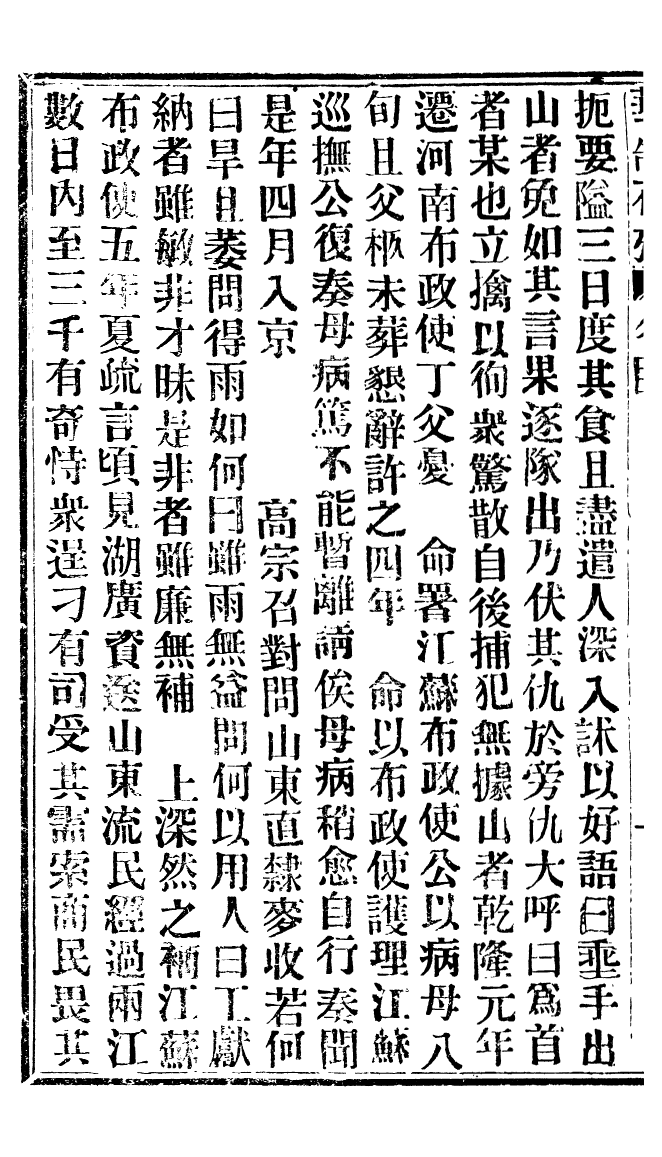 扼要隘三日度其食且盡遣人深入訹以好語曰垂手出
山者免如其言果逐隊出乃伏其仇於旁仇大呼曰爲首
者某也立擒以徇衆驚散自後捕犯無據山者乾隆元年
遷河南布政使丁父憂　命署江蘇布政使公以病母八
旬且父柩未葬懇辭許之四年　命以布政使護理江蘇
巡撫公復奏母病篤不能暫離請俟母病稍愈自行奏聞
是年四月入京　　　高宗召對問山東直隸麥收若何
曰旱且萎問得雨如何曰雖雨無益問何以用人曰工獻
納者雖敏非才昧是非者雖廉無補　上深然之補江蘇
布政使五年夏疏言頃見湖廣資送山東流民經過兩江
數日内至三千有奇恃衆逞刁有司受其需索商民畏其